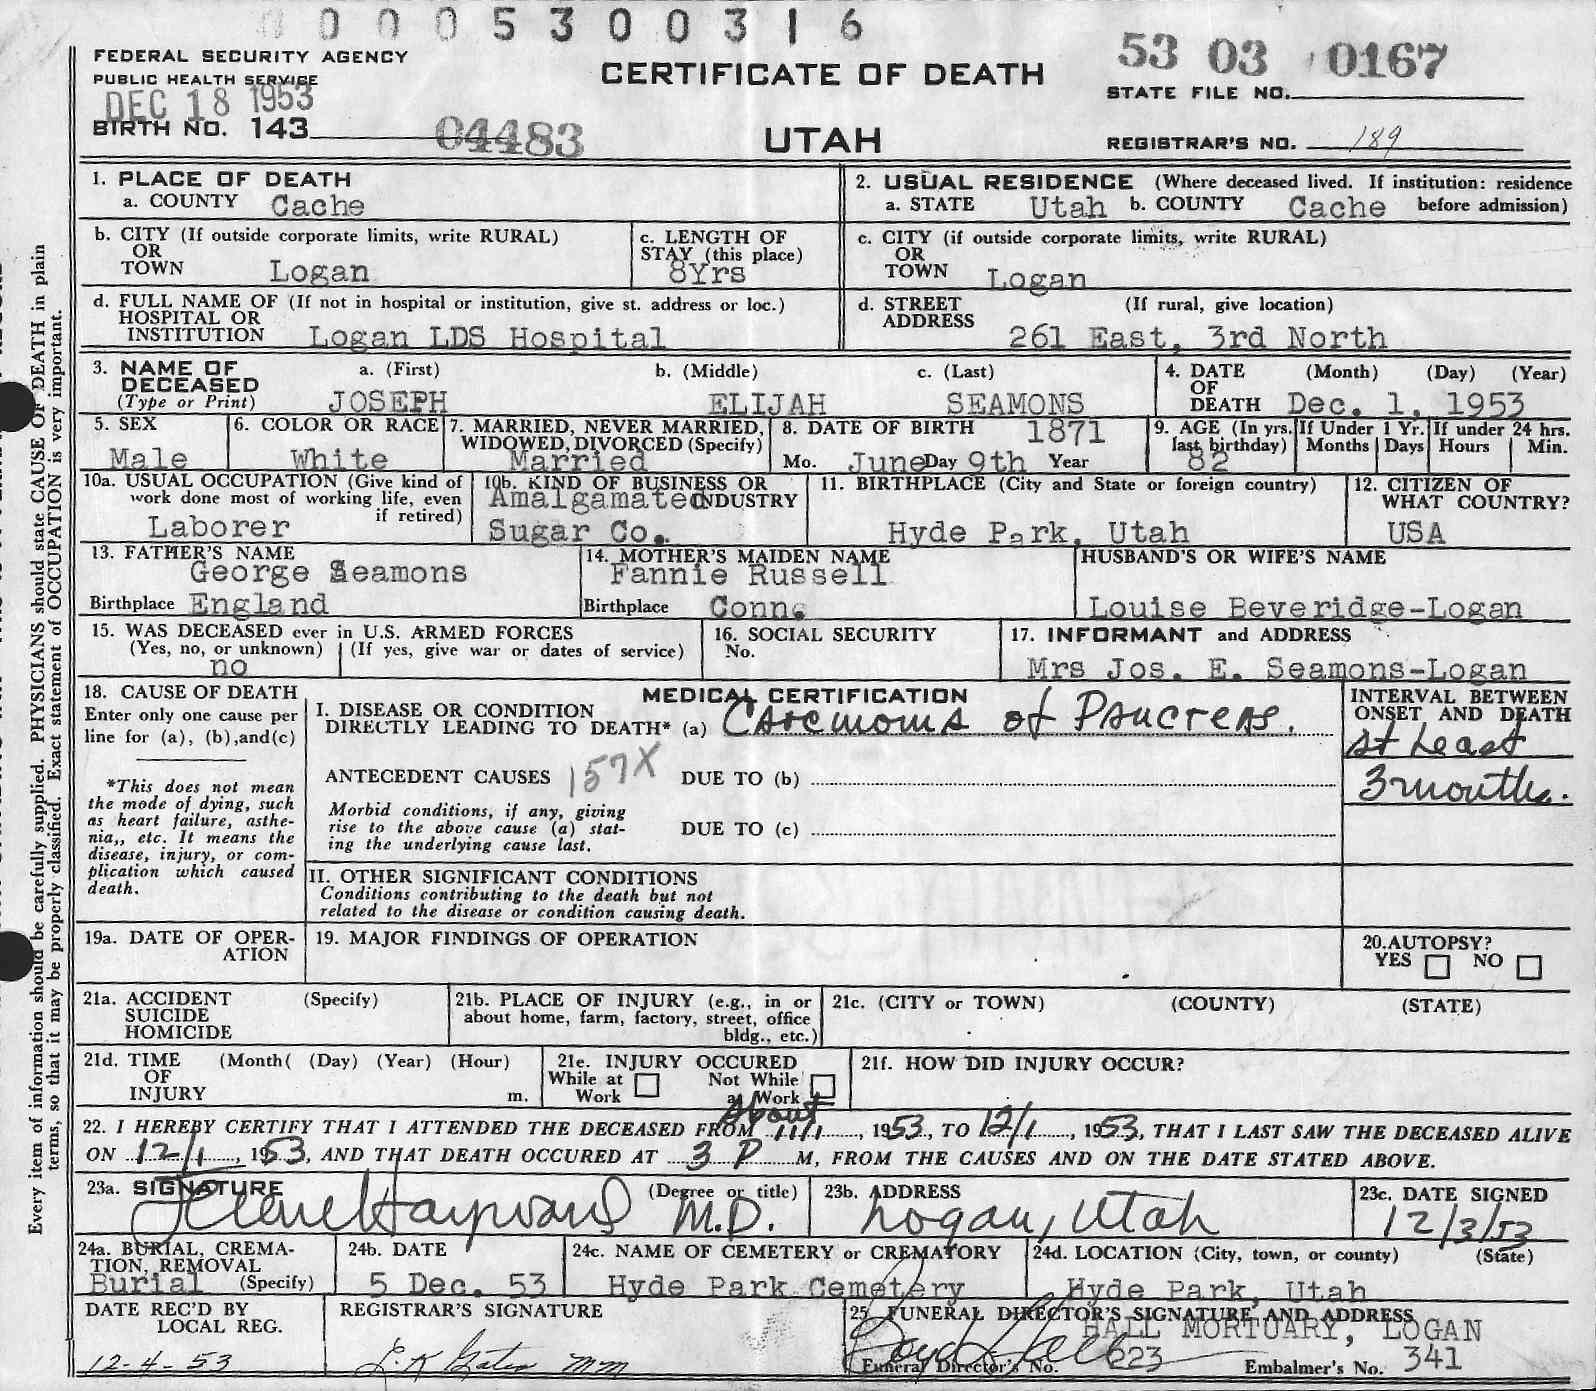 0 0 0 5 3 0 0 3 1 6
FEDERAL SECURITY AGENCY
PUBLIC HEALTH SERVICE
DEC 18 1953
BIRTH NO. 143 04483
CERTIFICATE OF DEATH
UTAH
53 03 0167
STATE FILE NO.
REGISTRAR'S NO. 189
1. PLACE OF DEATH
a. COUNTY Cache
2. USUAL RESIDENCE (Where deceased lived. If institution: residence
a. STATE Utah b. COUNTY Cache before admission)
b. CITY (If outside corporate limits, write RURAL)
OR
TOWN Logan
c. LENGTH OF
STAY (this place)
8Yrs
c. CITY (if outside corporate limits, write RURAL)
OR
TOWN Logan
d. FULL NAME OF (If not in hospital or institution, give st. address or loc.)
HOSPITAL OR
INSTITUTION Logan LDS Hospital
d. STREET (If rural, give location)
ADDRESS 261 East, 3rd North
3. NAME OF a. (First) b. (Middle) c. (Last)
DECEASED
(Type or Print) JOSEPH ELIJAH SEAMONS
4. DATE (Month) (Day) (Year)
OF
DEATH Dec. 1, 1953
5. SEX
Male
6. COLOR OR RACE
White
7. MARRIED, NEVER MARRIED,
WIDOWED, DIVORCED (Specify)
Married
8. DATE OF BIRTH 1871
Mo. June Day 9th Year
9. AGE (In yrs.
last birthday)
82
If Under 1 Yr.
Months Days
If under 24 hrs.
Hours Min.
10a. USUAL OCCUPATION (Give kind of
work done most of working life, even
if retired)
Laborer
10b. KIND OF BUSINESS OR
Amalgamated INDUSTRY
Sugar Co.
11. BIRTHPLACE (City and State or foreign country)
Hyde Park, Utah
12. CITIZEN OF
WHAT COUNTRY?
USA
13. FATHER'S NAME
George Seamons
Birthplace England
14. MOTHER'S MAIDEN NAME
Fannie Russell
Birthplace Conn.
HUSBAND'S OR WIFE'S NAME
Louise Beveridge-Logan
15. WAS DECEASED ever in U.S. ARMED FORCES
(Yes, no, or unknown) (If yes, give war or dates of service)
no
16. SOCIAL SECURITY
No.
17. INFORMANT and ADDRESS
Mrs Jos. E. Seamons-Logan
18. CAUSE OF DEATH
Enter only one cause per
line for (a), (b),and(c)
*This does not mean
the mode of dying, such
as heart failure, asthe-
nia,, etc. It means the
disease, injury, or com-
plication which caused
death.
MEDICAL CERTIFICATION
I. DISEASE OR CONDITION
DIRECTLY LEADING TO DEATH* (a) Carcinoma of Pancreas.
ANTECEDENT CAUSES 157X DUE TO (b)
Morbid conditions, if any, giving
rise to the above cause (a) stat-
ing the underlying cause last.
DUE TO (c)
II. OTHER SIGNIFICANT CONDITIONS
Conditions contributing to the death but not
related to the disease or condition causing death.
INTERVAL BETWEEN
ONSET AND DEATH
at Least
3 months.
19a. DATE OF OPER-
ATION
19. MAJOR FINDINGS OF OPERATION
20.AUTOPSY?
YES NO
21a. ACCIDENT (Specify)
SUICIDE
HOMICIDE
21b. PLACE OF INJURY (e.g., in or
about home, farm, factory, street, office
bldg., etc.)
21c. (CITY or TOWN) (COUNTY) (STATE)
21d. TIME (Month( (Day) (Year) (Hour)
OF
INJURY m.
21e. INJURY OCCURED
While at Not While
Work at Work
21f. HOW DID INJURY OCCUR?
About
22. I HEREBY CERTIFY THAT I ATTENDED THE DECEASED FROM 11/1, 1953, TO 12/1, 1953, THAT I LAST SAW THE DECEASED ALIVE
ON 12/1, 1953, AND THAT DEATH OCCURED AT 3 P M, FROM THE CAUSES AND ON THE DATE STATED ABOVE.
23a. SIGNATURE (Degree or title)
Hayward M.D.
23b. ADDRESS
Logan, Utah
23c. DATE SIGNED
12/3/53
24a. BURIAL, CREMA-
TION, REMOVAL
Burial (Specify)
24b. DATE
5 Dec. 53
24c. NAME OF CEMETERY or CREMATORY
Hyde Park Cemetery
24d. LOCATION (City, town, or county) (State)
Hyde Park, Utah
DATE REC'D BY
LOCAL REG.
12-4-53
REGISTRAR'S SIGNATURE
25. FUNERAL DIRECTOR'S SIGNATURE AND ADDRESS
HALL MORTUARY, LOGAN
Funeral Director's No. 223 Embalmer's No. 341
Every item of information should be carefully supplied. PHYSICIANS should state CAUSE OF DEATH in plain
terms, so that it may be properly classified. Exact statement of OCCUPATION is very important.